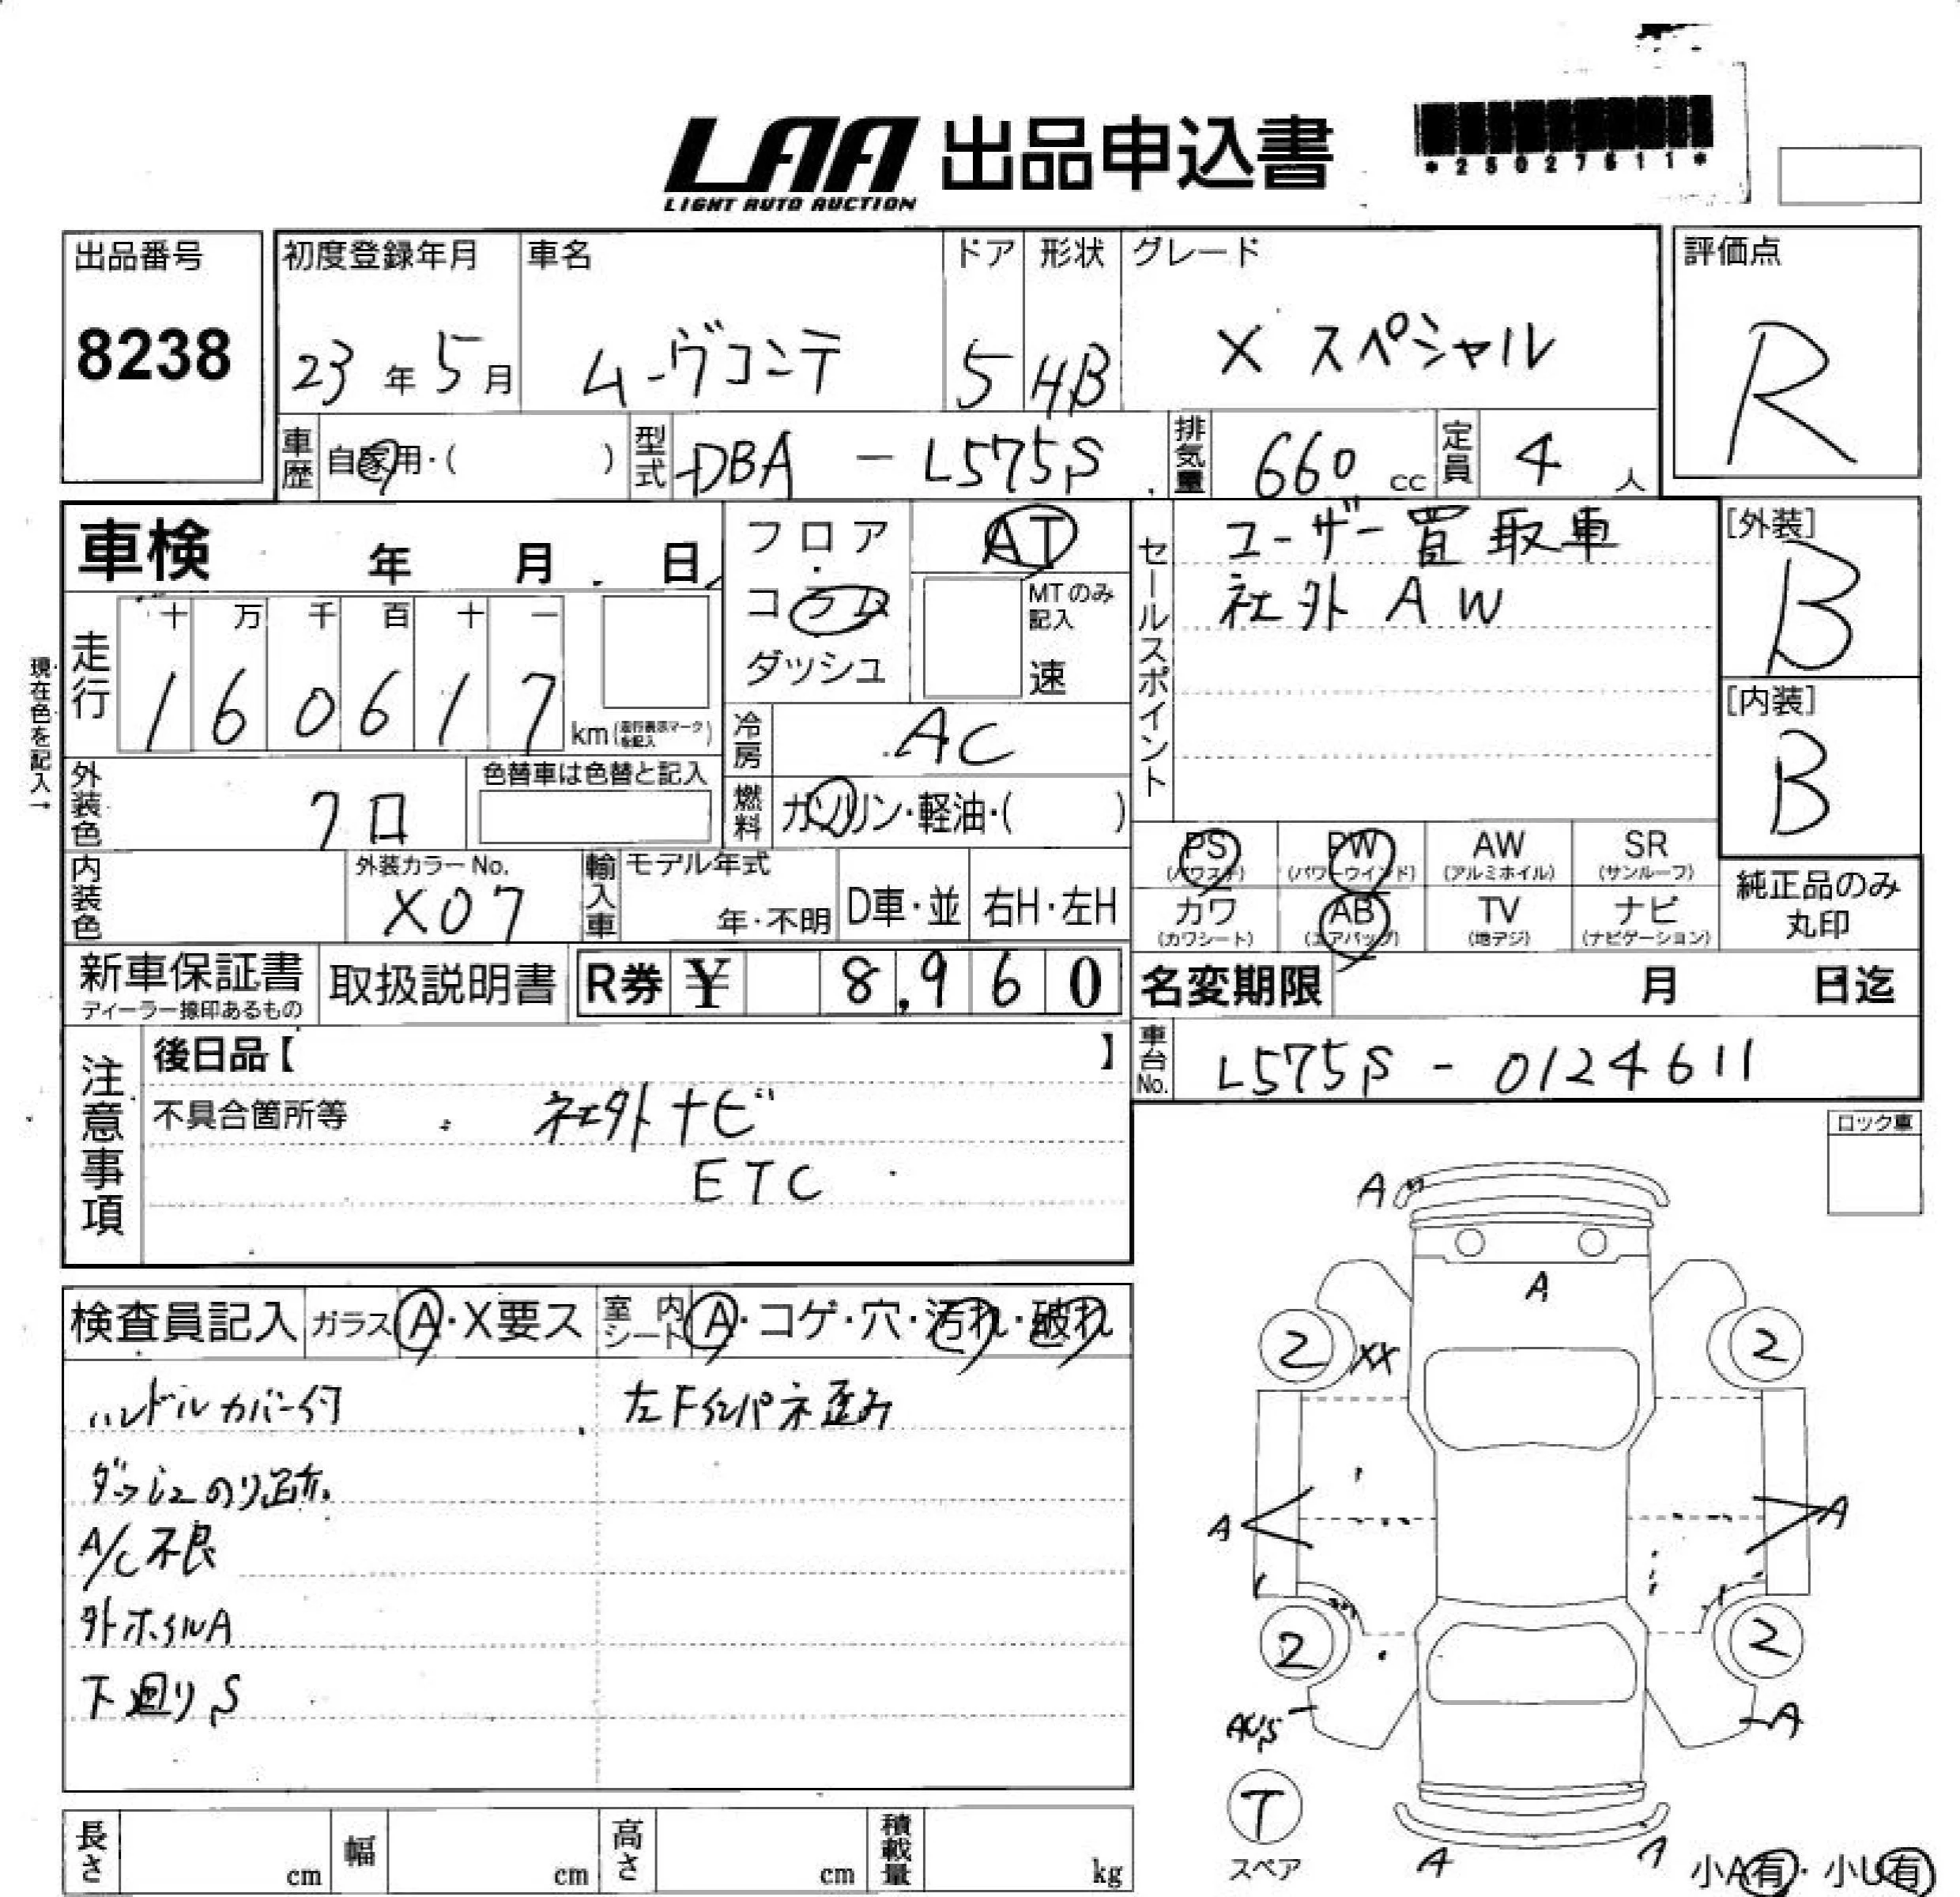 LAA 出品申込書
LIGHT AUTO AUCTION
*25027611*
出品番号 8238
初度登録年月 23年5月
車名 ムーヴコンテ
ドア 5
形状 HB
グレード X スペシャル
評価点 R
車歴 自家用・( )
型式 DBA - L575S
排気量 660 cc
定員 4 人
車検 年 月 日
フロア
コラム
ダッシュ
AT
MTのみ記入
速
セールスポイント
ユーザー買取車
社外 AW
[外装] B
[内装] B
現在色を記入→
走行 十 万 千 百 十 一
1 6 0 6 1 7 km (走行表示マークを記入)
冷房 AC
外装色 クロ
色替車は色替と記入
燃料 ガソリン・軽油・( )
PS (パワステ) PW (パワーウインド) AW (アルミホイル) SR (サンルーフ)
カワ (カワシート) AB (エアバッグ) TV (地デジ) ナビ (ナビゲーション)
純正品のみ丸印
内装色
外装カラーNo. X07
輸入車 モデル年式 年・不明 D車・並 右H・左H
新車保証書 ディーラー捺印あるもの
取扱説明書
R券 ¥ 8,960
名変期限 月 日迄
車台No. L575S - 0124611
注意事項
後日品【 】
不具合箇所等 社外ナビ
ETC
ロック車
検査員記入 ガラス A・X要ス 室内シート A・コゲ・穴・汚れ・破れ
ハンドルカバー付 左Fインパネ歪み
ダッシュのり跡
A/C不良
外ホイルA
下廻りS
A
A
2 XX 2
A A
2 2
AUS A
T
スペア
A A
小A有・小U有
長さ cm 幅 cm 高さ cm 積載量 kg